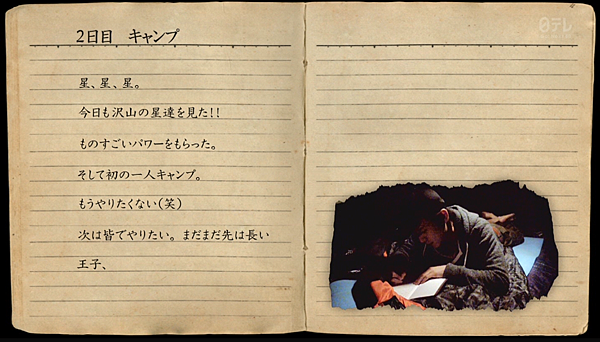 2日目 キャンプ
星、星、星。
今日も沢山の星達を見た!!
ものすごいパワーをもらった。
そして初の一人キャンプ。
もうやりたくない(笑)
次は皆でやりたい。まだまだ先は長い
王子、
日テレ